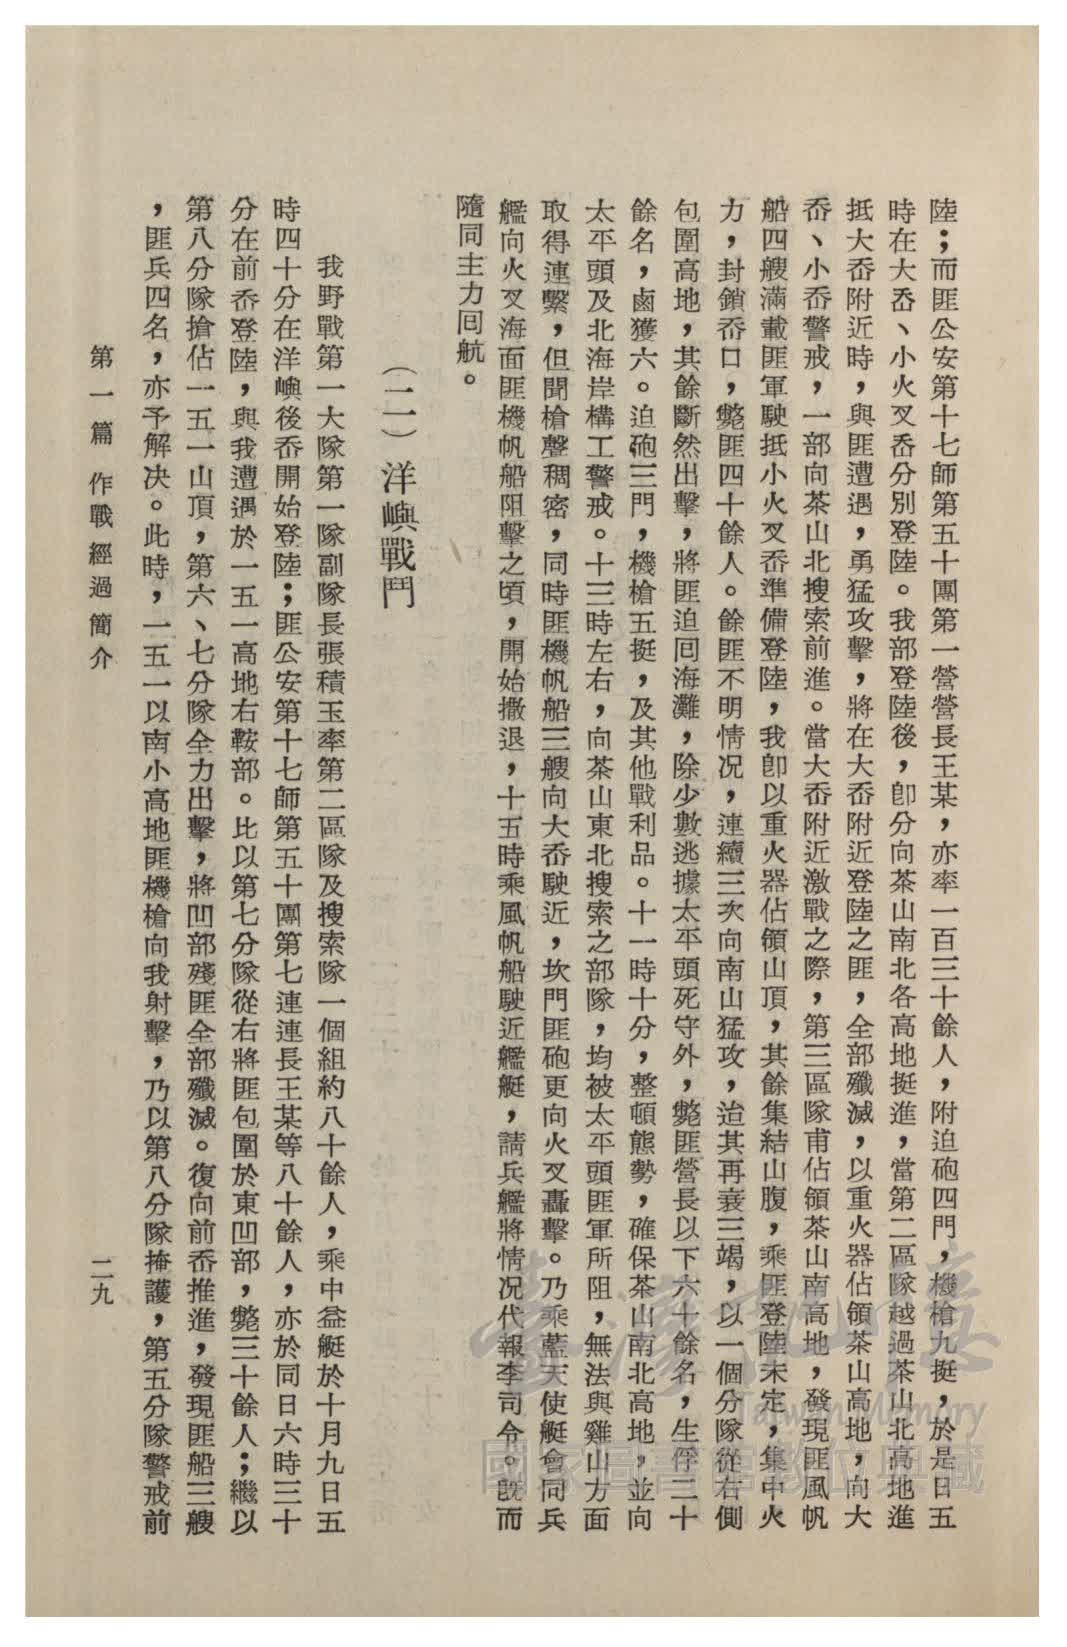 陸；而匪公安第十七師第五十團第一營營長王某，亦率一百三十餘人，附迫砲四門，機槍九挺，於是日五
時在大岙、小火叉岙分別登陸。我部登陸後，卽分向茶山南北各高地挺進，當第二區隊越過茶山北高地進
抵大岙附近時，與匪遭遇，勇猛攻擊，將在大岙附近登陸之匪，全部殲滅，以重火器佔領茶山高地，向大
岙、小岙警戒，一部向茶山北搜索前進。當大岙附近激戰之際，第三區隊甫佔領茶山南高地，發現匪風帆
船四艘滿載匪軍駛抵小火叉岙準備登陸，我卽以重火器佔領山頂，其餘集結山腹，乘匪登陸未定，集中火
力，封鎖岙口，斃匪四十餘人。餘匪不明情况，連續三次向南山猛攻，迨其再衰三竭，以一個分隊從右側
包圍高地，其餘斷然出擊，將匪迫囘海灘，除少數逃據太平頭死守外，斃匪營長以下六十餘名，生俘三十
餘名，鹵獲六。迫砲三門，機槍五挺，及其他戰利品。十一時十分，整頓態勢，確保茶山南北高地，並向
太平頭及北海岸構工警戒。十三時左右，向茶山東北搜索之部隊，均被太平頭匪軍所阻，無法與雞山方面
取得連繫，但聞槍聲稠密，同時匪機帆船三艘向大岙駛近，坎門匪砲更向火叉轟擊。乃乘藍天使艇會同兵
艦向火叉海面匪機帆船阻擊之頃，開始撤退，十五時乘風帆船駛近艦艇，請兵艦將情况代報李司令。旣而
隨同主力囘航。
（二）洋嶼戰鬥
我野戰第一大隊第一隊副隊長張積玉率第二區隊及搜索隊一個組約八十餘人，乘中益艇於十月九日五
時四十分在洋嶼後岙開始登陸；匪公安第十七師第五十團第七連連長王某等八十餘人，亦於同日六時三十
分在前岙登陸，與我遭遇於一五一高地右鞍部。比以第七分隊從右將匪包圍於東凹部，斃三十餘人；繼以
第八分隊搶佔一五一山頂，第六、七分隊全力出擊，將凹部殘匪全部殲滅。復向前岙推進，發現匪船三艘
，匪兵四名，亦予解決。此時，一五一以南小高地匪機槍向我射擊，乃以第八分隊掩護，第五分隊警戒前
第一篇 作戰經過簡介
二九
臺灣記憶
Taiwan Memory
國家圖書館數位典藏